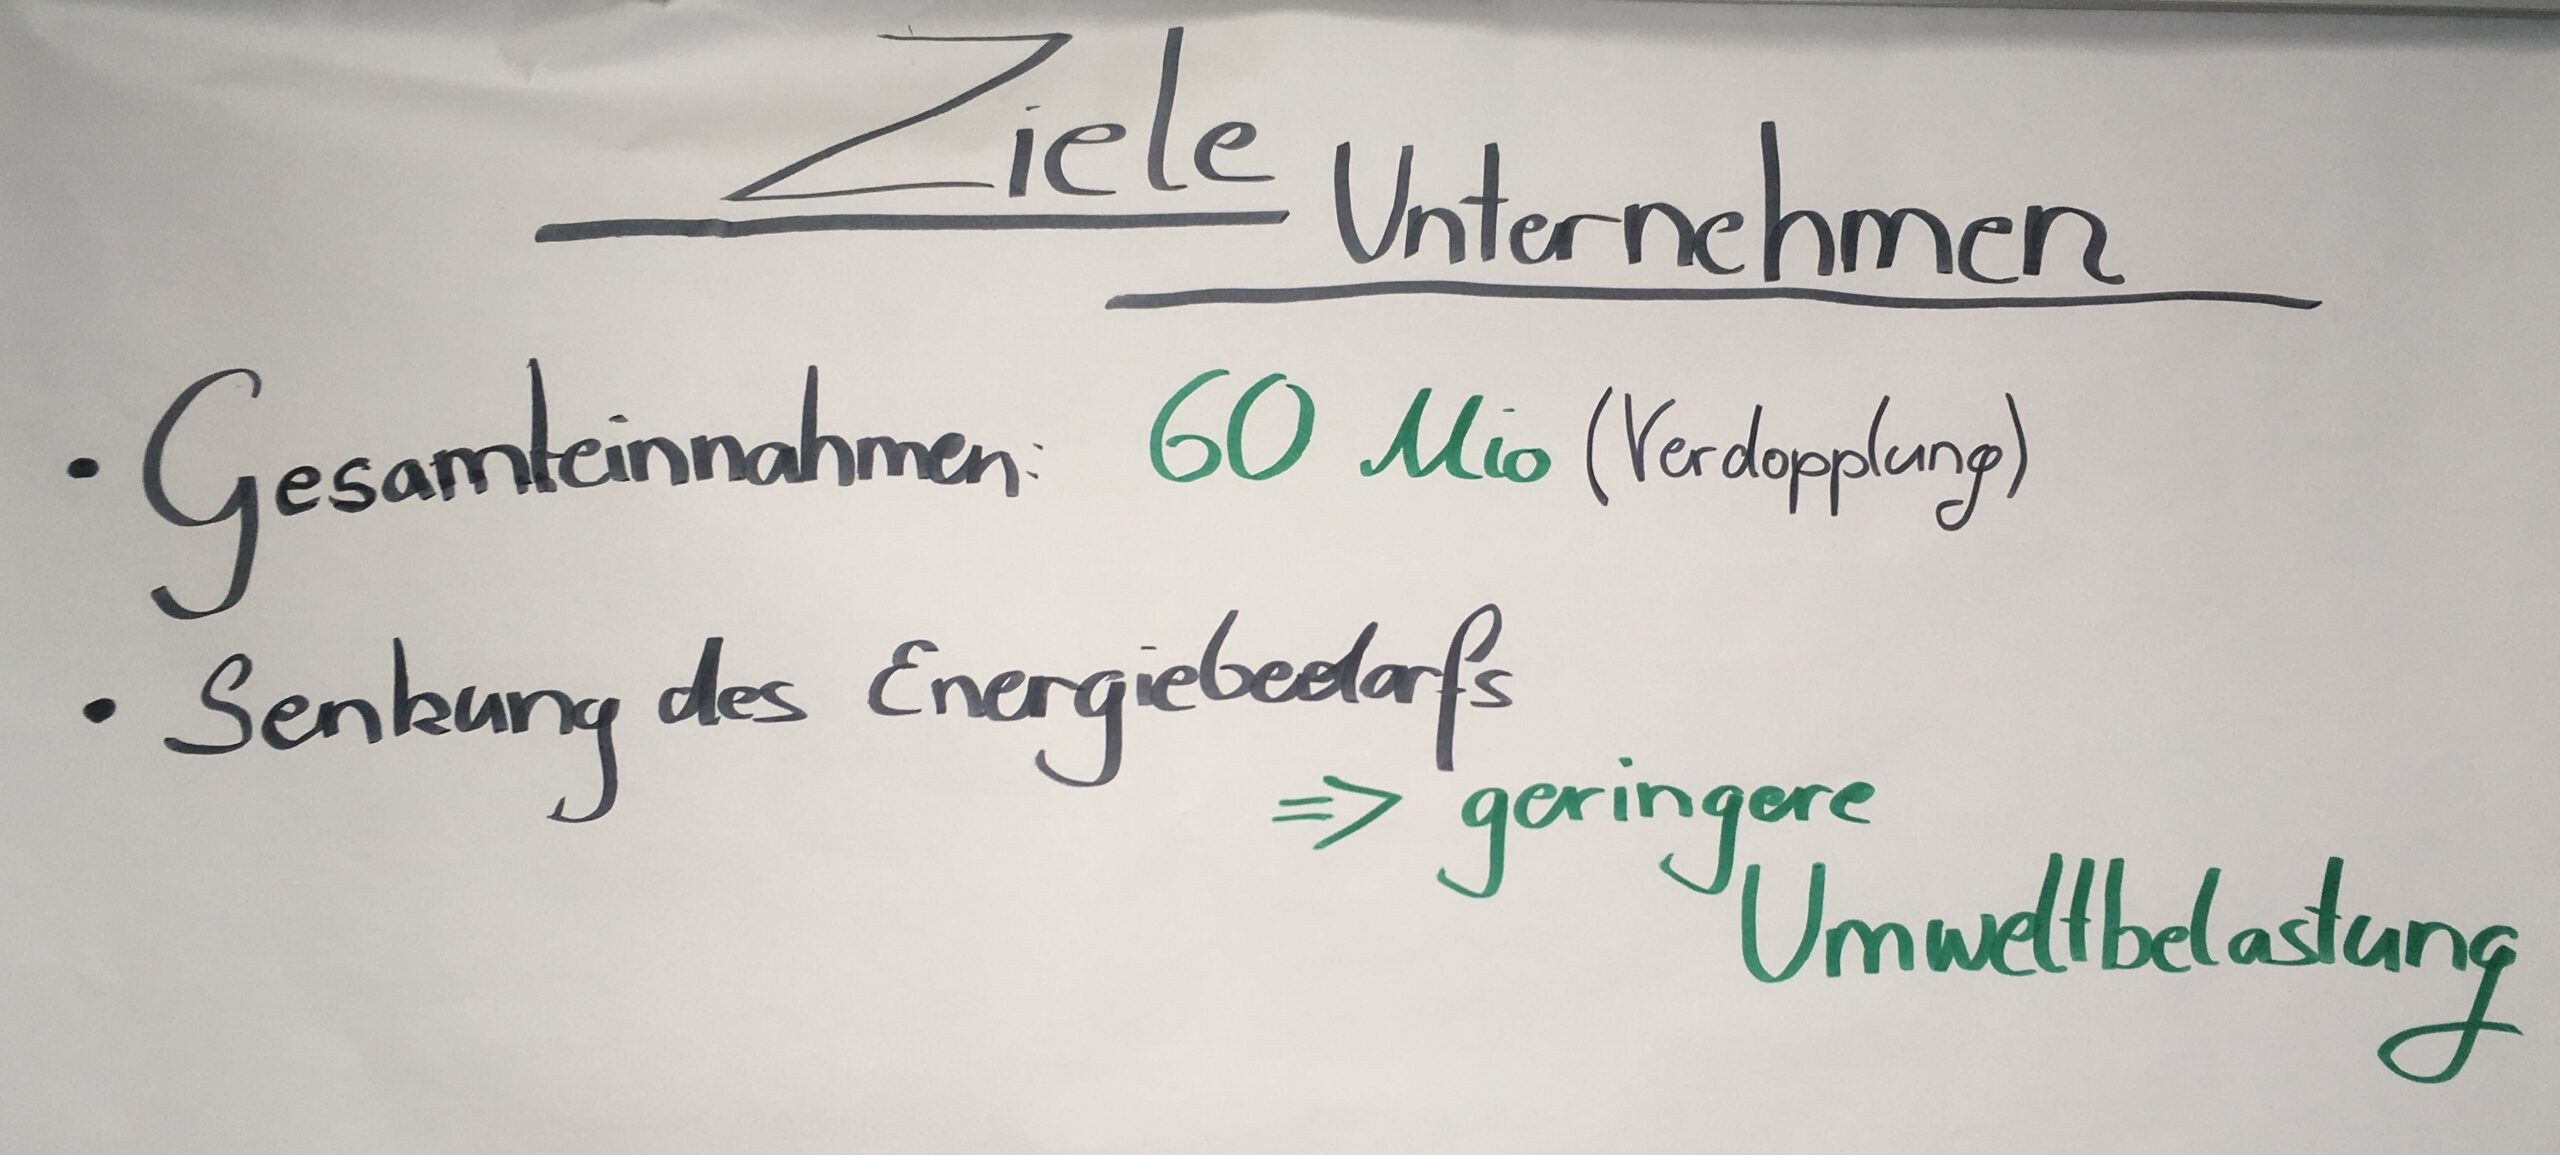 Ziele Unternehmen
• Gesamteinnahmen: 60 Mio (Verdopplung)
• Senkung des Energiebedarfs
=> geringere
Umweltbelastung